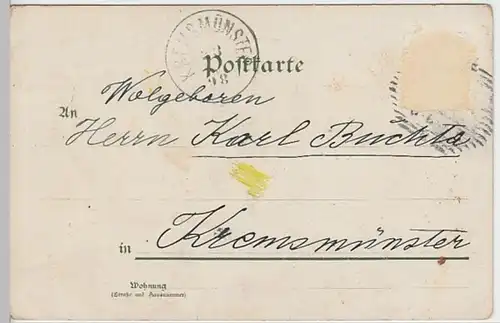 KREMSMÜNSTER
98
Postkarte
Wolgeboren
An
Herrn Karl Buchta
in Kremsmünster
Wohnung
(Straße und Hausnummer)